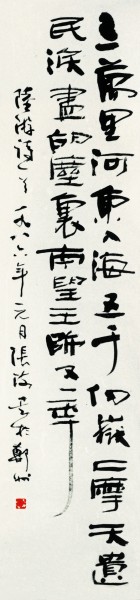 三萬里河東入海五千仞嶽上摩天遺
民淚盡胡塵裏南望王師又一年
陸游詩一首一九八六年元月張海書於鄭州